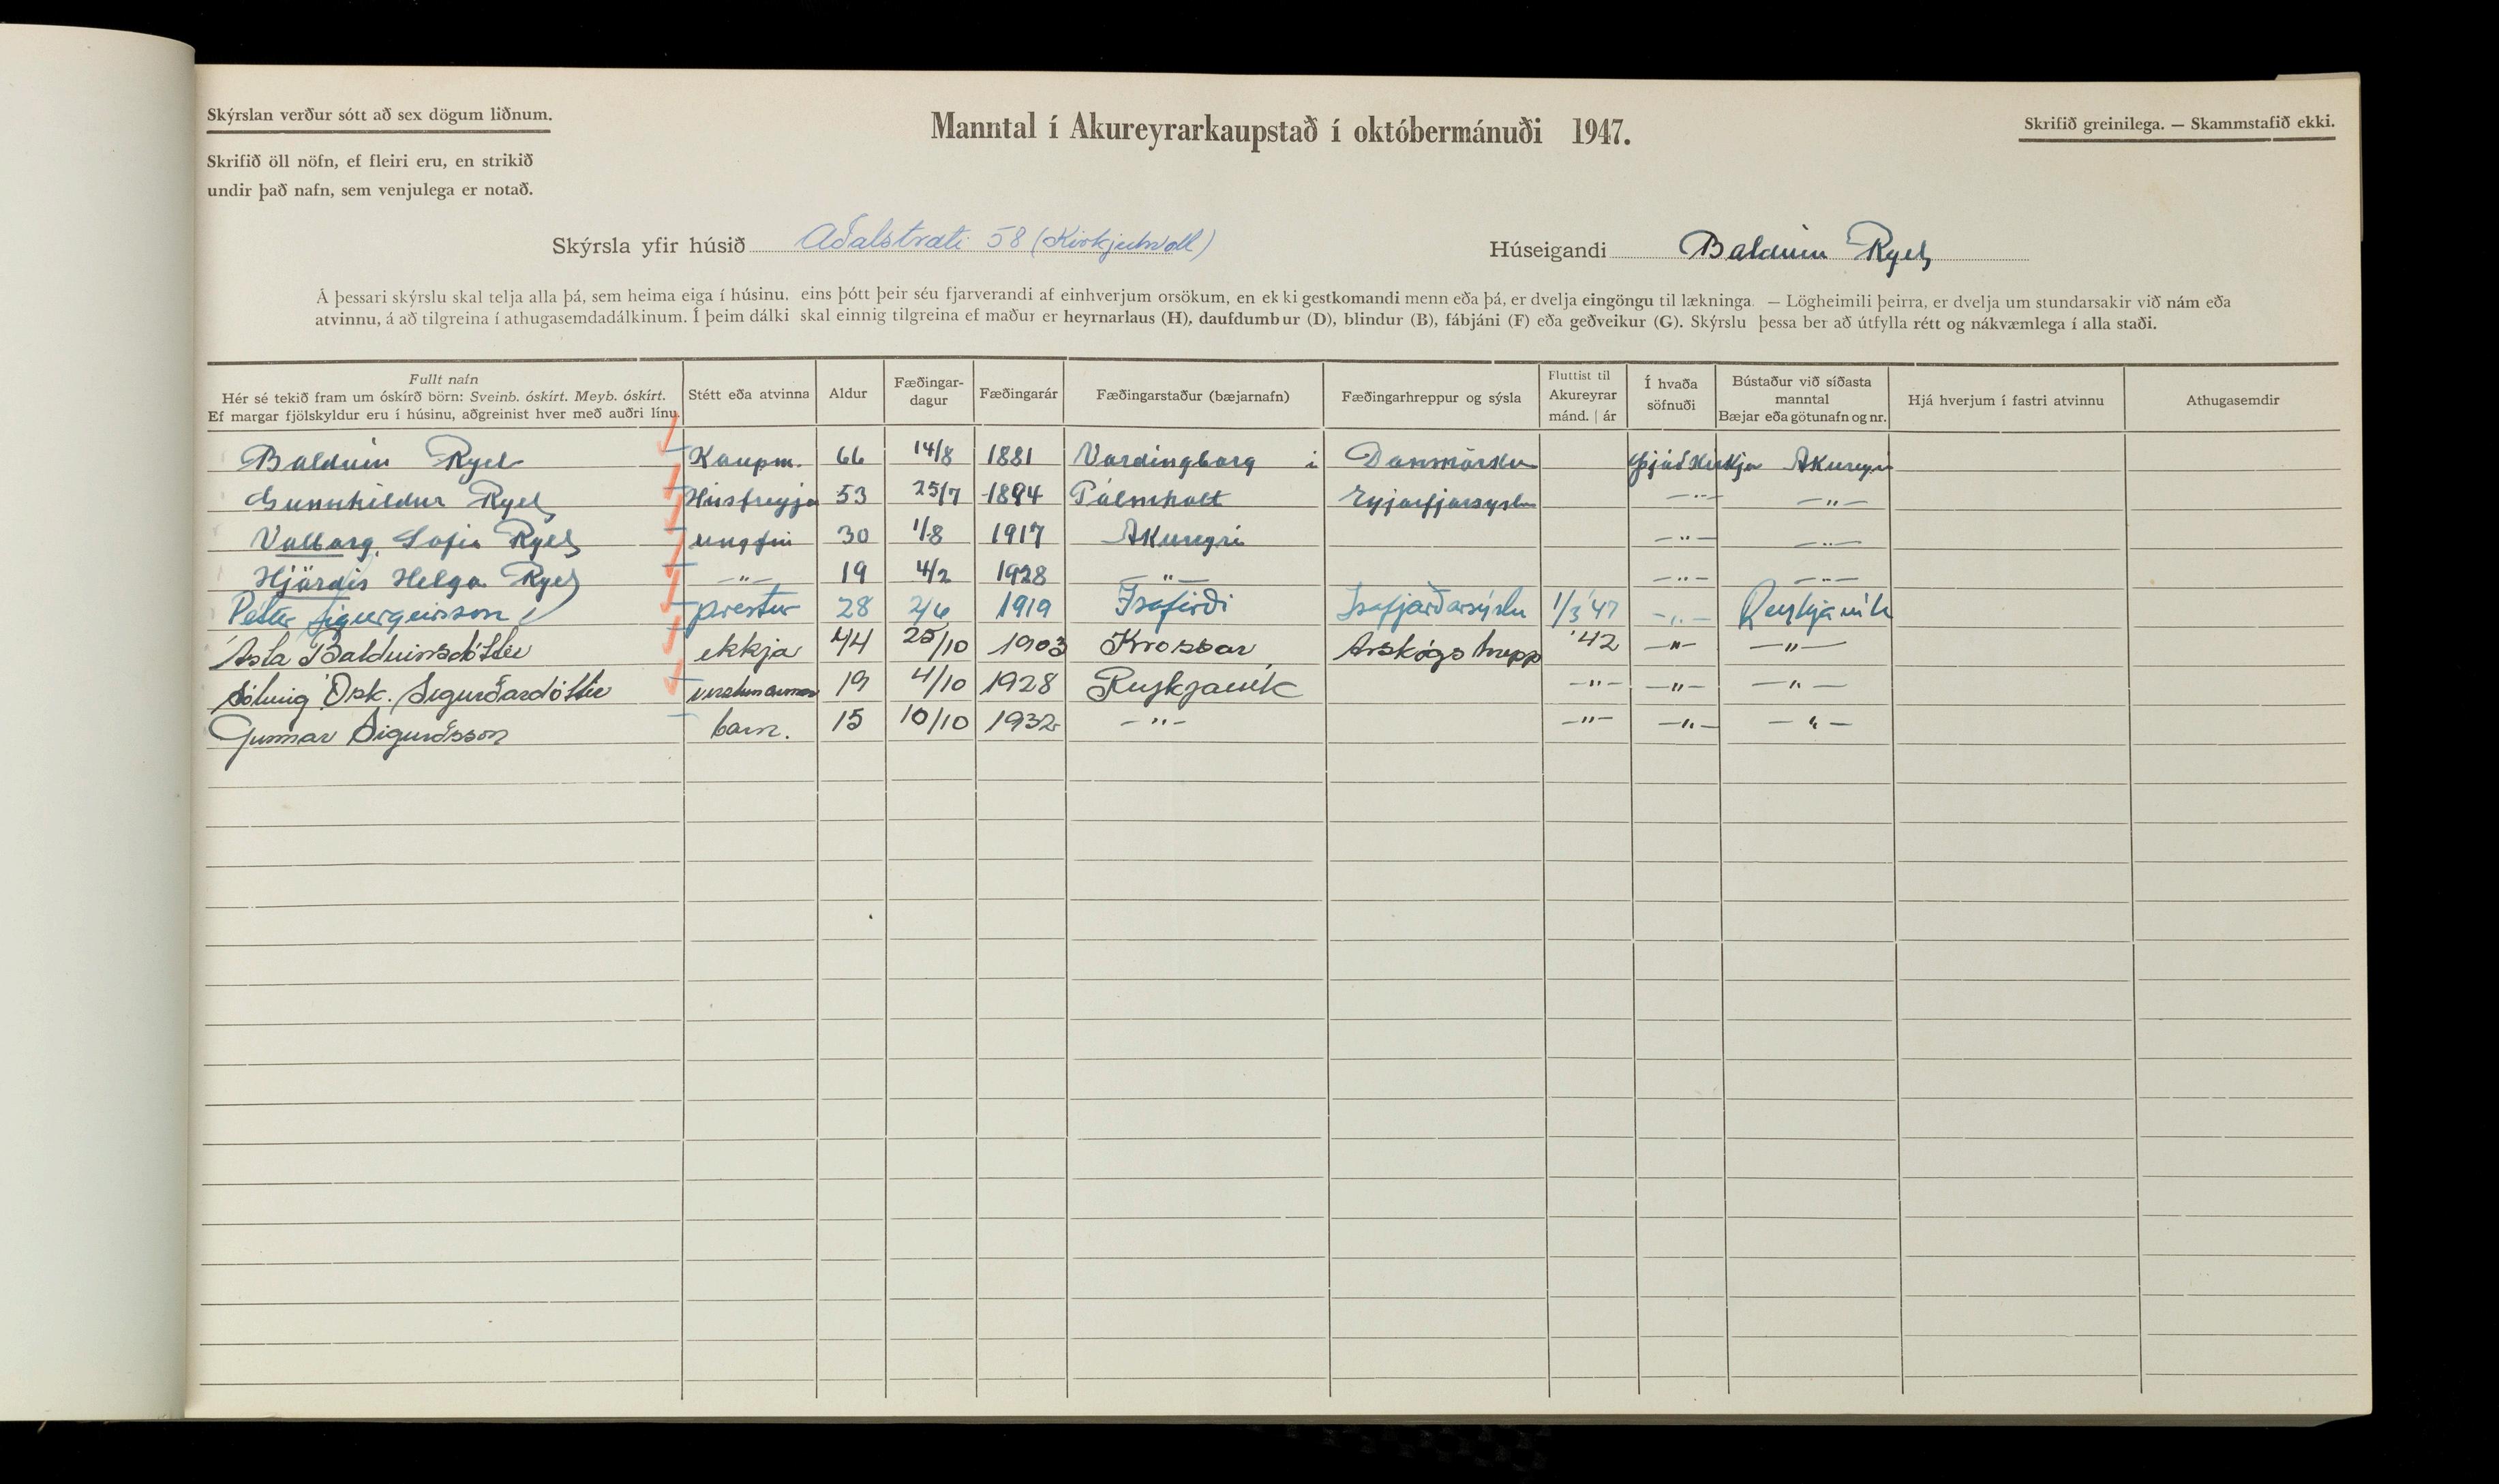 Skýrslan verður sótt að sex dögum liðnum.
Skrifið öll nöfn, ef fleiri eru, en strikið
undir það nafn, sem venjulega er notað.
Manntal í Akureyrarkaupstað í októbermánuði 1947.
Skrifið greinilega. — Skammstafið ekki.
Skýrsla yfir húsið Aðalstræti 58 (Kirkjuhvoll)
Húseigandi Balduin Ryel
Á þessari skýrslu skal telja alla þá, sem heima eiga í húsinu, eins þótt þeir séu fjarverandi af einhverjum orsökum, en ekki gestkomandi menn eða þá, er dvelja eingöngu til lækninga. — Lögheimili þeirra, er dvelja um stundarsakir við nám eða
atvinnu, á að tilgreina í athugasemdadálkinum. Í þeim dálki skal einnig tilgreina ef maður er heyrnarlaus (H), daufdumbur (D), blindur (B), fábjáni (F) eða geðveikur (G). Skýrslu þessa ber að útfylla rétt og nákvæmlega í alla staði.
Fullt nafn
Hér sé tekið fram um óskírð börn: Sveinb. óskírt. Meyb. óskírt.
Ef margar fjölskyldur eru í húsinu, aðgreinist hver með auðri línu.
Stétt eða atvinna
Aldur
Fæðingar-
dagur
Fæðingarár
Fæðingarstaður (bæjarnafn)
Fæðingarhreppur og sýsla
Fluttist til
Akureyrar
mánd. | ár
Í hvaða
söfnuði
Bústaður við síðasta
manntal
Bæjar eða götunafn og nr.
Hjá hverjum í fastri atvinnu
Athugasemdir
Balduin Ryel Kaupm. 66 14/8 1881 Vordingborg i Danmörku Þjóðkirkja Akureyri
Gunnhildur Ryel Húsfreyja 53 25/7 1894 Pálmholt Eyjafjarsyslu —"— —"—
Valborg Sofie Ryel ungfrú 30 1/8 1917 Akureyri —"— —"—
Hjördis Helga Ryel —"— 19 4/2 1928 —"— —"— —"—
Pétur Sigurgeirsson prestur 28 2/6 1919 Ísafirði Ísafjarðarsýslu 1/3 '47 —"— Reykjavík
Ásta Balduinsdóttir ekkja 44 25/10 1903 Krossar Árskógshrepp '42 —"— —"—
Sólveig Ósk. Sigurðardóttir 19 4/10 1928 Reykjavík —"— —"— —"—
Gunnar Sigurðsson barn. 15 10/10 1932 —"— —"— —"— —"—